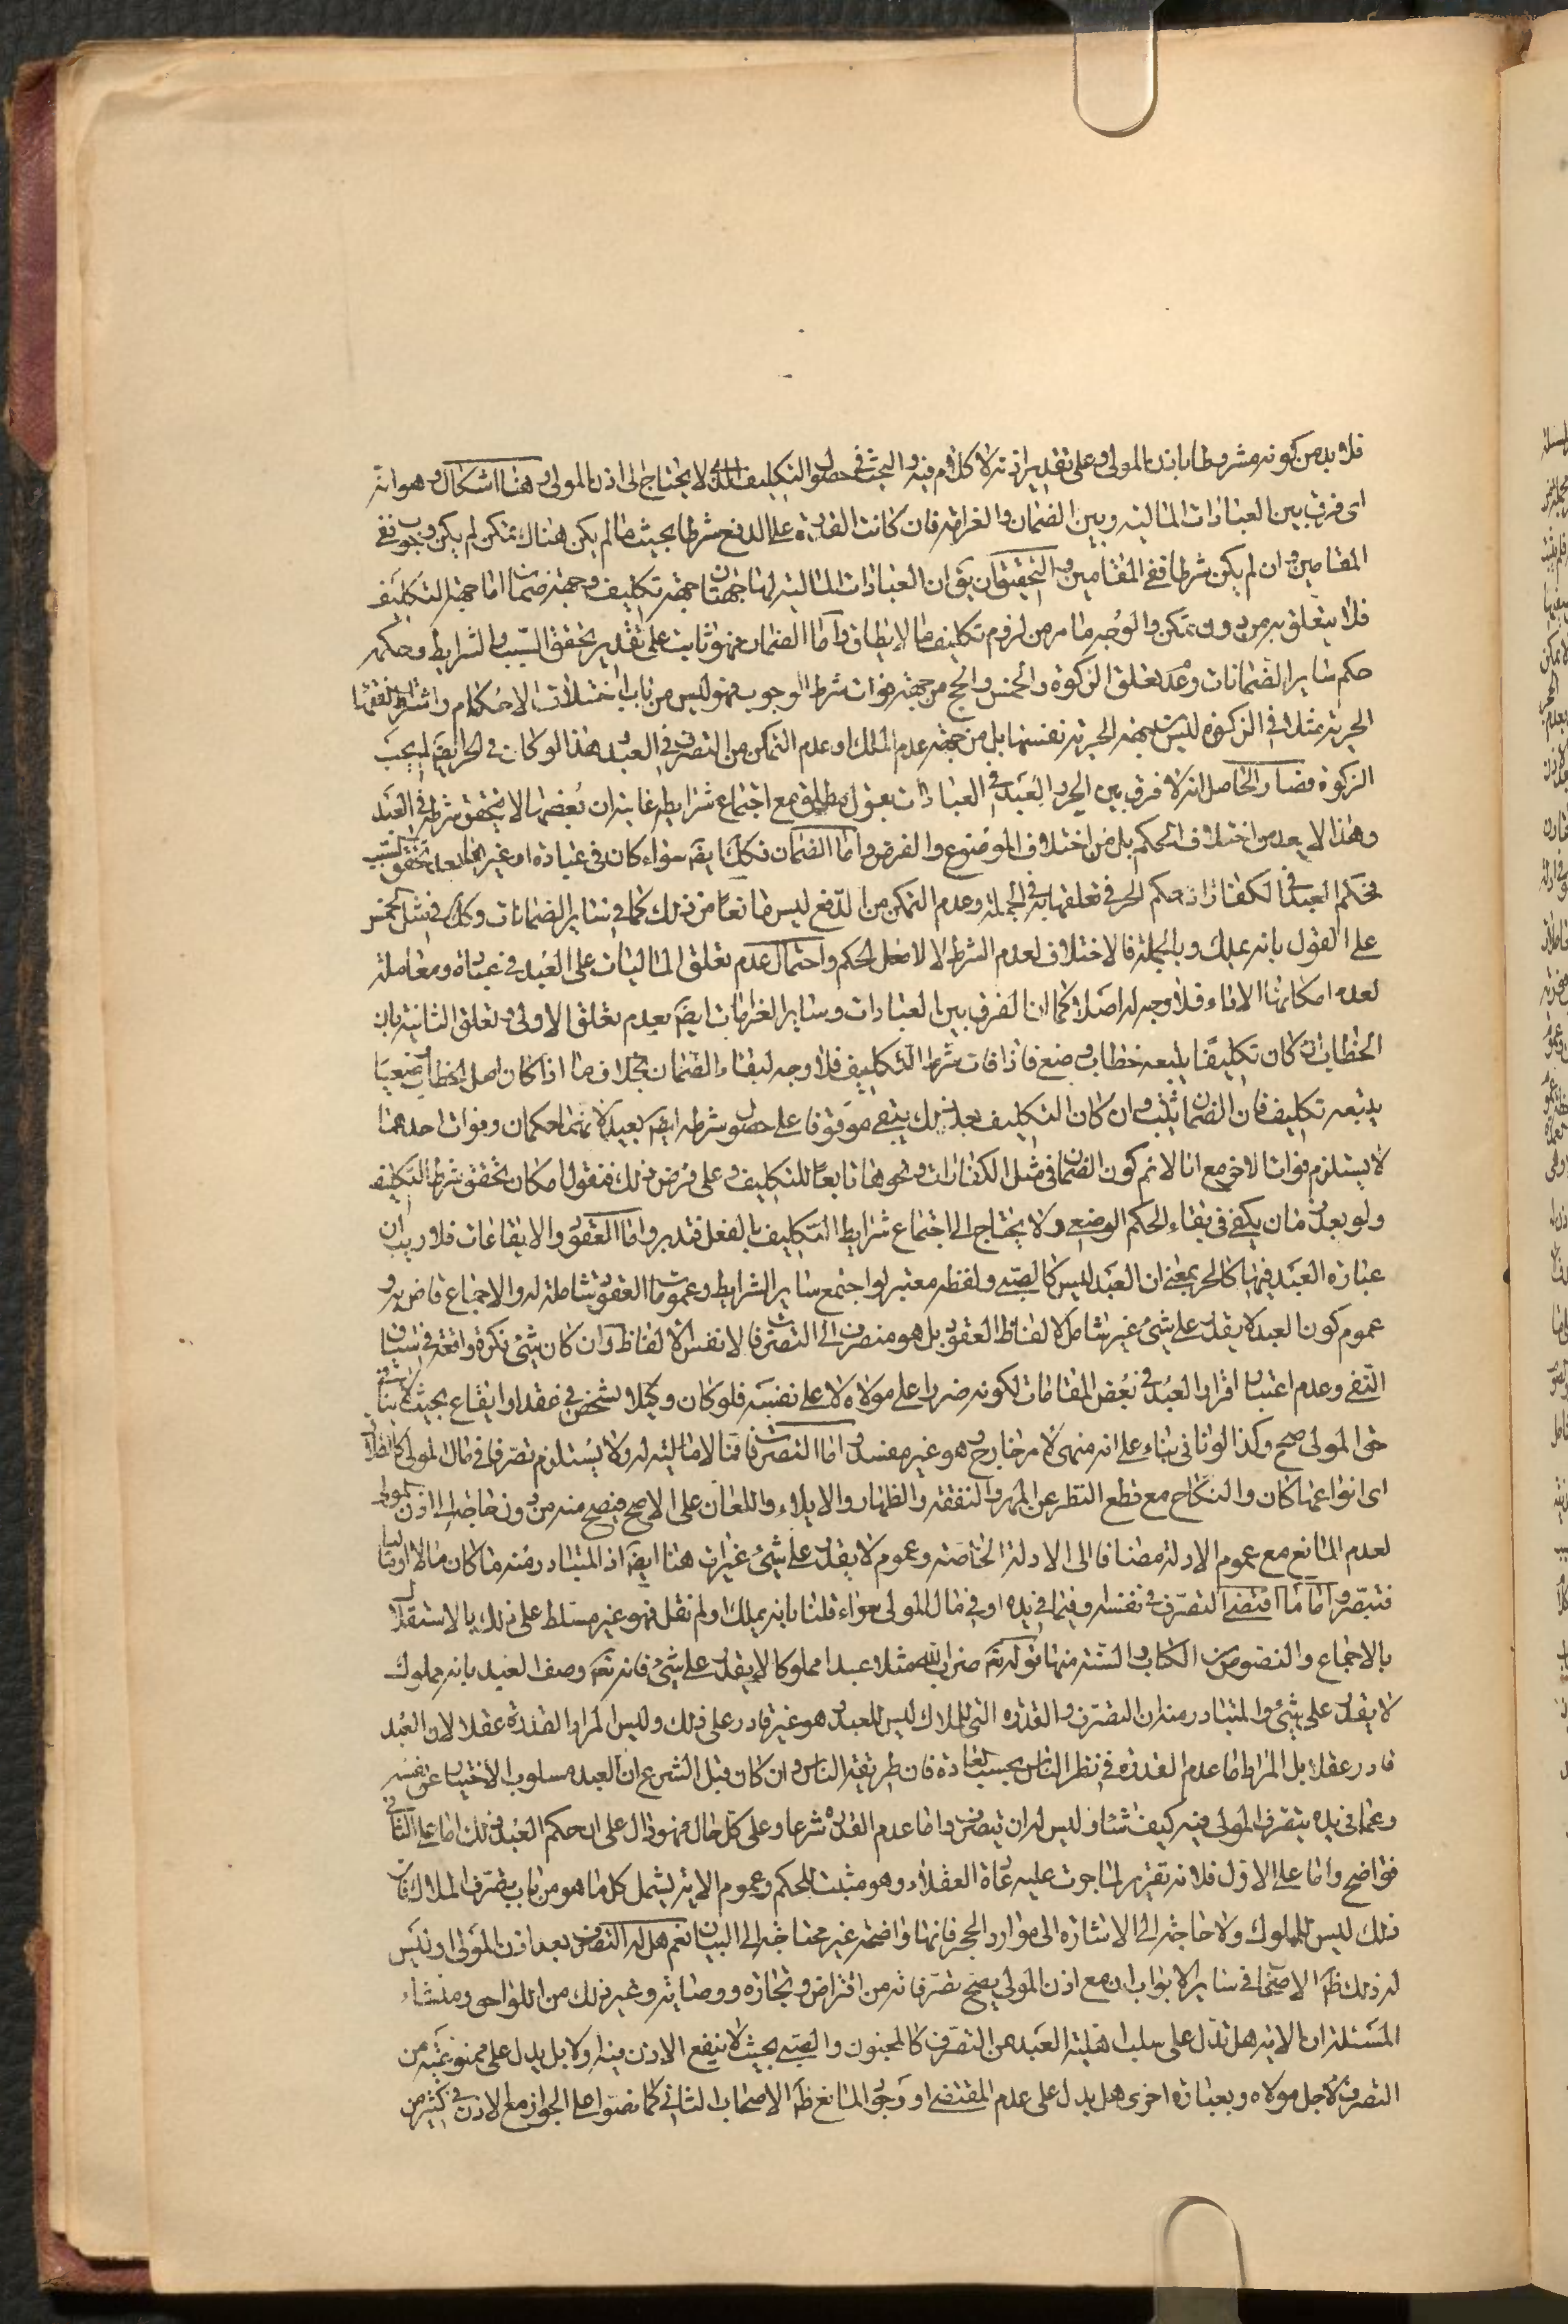 فلا بد من كونه مشروطا باذن المولى وعلى تقدير اذنه لا كلام فيه والبحث في حصول التكليف المالى لا يحتاج الى اذن المولى وهنا اشكال وهو انه
اى فرق بين العبادات المالية وبين الضمان والغرامة فان كانت القدرة على الدفع شرطا بحيث ما لم يكن هناك تمكن لم يكن وجوب ففى
المقامين وان لم يكن شرطا ففى المقامين والتحقيق ان يق ان العبادات المالية لها جهتان جهة تكليف وجهة ضمان اما جهة التكليف
فلا يتعلق به من دون تمكن والوجه ما مر من لزوم تكليف ما لا يطاق واما الضمان فهو ثابت على تقدير تحقق السبب والشرايط وحكمه
حكم ساير الضمانات وعدم تعلق الزكوة والخمس والحج من جهة فوات شرط الوجوب فهو ليس من باب اختلاف الاحكام واشتراط الفقهاء
الحرية مثلا فى الزكوة ليس لجهة الحرية نفسها بل من جهة عدم الملك او عدم التمكن من التصرف فى العبد وهذا لو كان فى الحر ايضا لم يجب
الزكوة فصار الحاصل انه لا فرق بين الحر والعبد فى العبادات بقول مطلق مع اجتماع شرايطه غايته ان بعضها لا يتحقق شرطه فى العبد
وهذا لا يعد من اختلاف الحكم بل من اختلاف الموضوع والفرض واما الضمان فكك ايضا سواء كان فى عبادة او غيرها بعد تحقق السبب
فحكم العبد فى الكفارات حكم الحر فى تعلقها به فى الجملة وعدم التمكن من الدفع ليس مانعا من ذلك كما فى ساير الضمانات وكك فى مثل الخمس
على القول بانه يملك وبالجملة فالاختلاف لعدم الشرط لا لاصل الحكم واحتمال عدم تعلق الماليات على العبد فى عبادة ومعاملة
لعدم امكانها الاداء فلا وجه له اصلا كما ان الفرق بين العبادات وساير الغرامات ايضا بعدم تعلق الاولى وتعلق الثانية بان
الخطاب ان كان تكليفا يتبعه خطاب وضع فاذا فات شرط التكليف فلا وجه لبقاء الضمان بخلاف ما اذا كان اصل الخطاب وضعيا
يتبعه تكليف فان الضمان يثبت وان كان التكليف بعد ذلك يبقى موقوفا على حصول شرطه ايضا بعيد لانهما حكمان وفوات احدهما
لا يستلزم فوات الاخر مع انا لا نم كون الضمان فى مثل الكفارات ونحوها تابعا للتكليف وعلى فرض ذلك فنقول امكان تحقق شرط التكليف
ولو بعد زمان يكفى فى بقاء الحكم الوضعى ولا يحتاج الى اجتماع شرايط التكليف بالفعل فتدبر واما العقود والايقاعات فلا ريب ان
عبارة العبد فيها كالحر بمعنى ان العبد ليس كالصبى ولفظه معتبر لو اجتمع ساير الشرايط وعمومات العقود شاملة له والاجماع قاض به و
عموم كون العبد لا يقدر على شئ غير شامل لالفاظ العقود بل هو منصرف الى التصرفات لا نفس الالفاظ وان كان شئ نكرة واقعة فى سياق
النفى وعدم اعتبار اقرار العبد فى بعض المقامات لكونه ضررا على مولاه لا على نفسه فلو كان وكيلا لشخص فى عقد او ايقاع بحيث لا ينافى
حق المولى صح وكذا لو نافى بناء على انه منهى لامر خارج وهو غير مفسد واما التصرفات فما لا مالية له ولا يستلزم تصرفا فى مال المولى كالطلاق
اى انواعها كان والنكاح مع قطع النظر عن المهر والنفقة والظهار والايلاء واللعان على الاصح فيصح منه من دون حاجة الى اذن المولى
لعدم المانع مع عموم الادلة مضافا الى الادلة الخاصة وعموم لا يقدر على شئ غير ات هنا ايضا اذ المتبادر منه ما كان مالا او ماليا
فتبصر واما ما اقتضى التصرف فى نفسه وفيما فى يده او فى مال المولى سواء قلنا بانه يملك او لم نقل فهو غير مسلط على ذلك بالاستقلال
بالاجماع والنصوص من الكتاب والسنة منها قوله تعالى ضرب الله مثلا عبدا مملوكا لا يقدر على شئ فانه تعالى وصف العبد بانه مملوك
لا يقدر على شئ والمتبادر منه ان التصرف والقدرة التى للملاك ليس للعبد وهو غير قادر على ذلك وليس المراد القدرة عقلا لان العبد
قادر عقلا بل المراد اما عدم القدرة فى نظر الناس بحسب العادة فان طريقة الناس وان كان قبل الشرع ان العبد مسلوب الاختيار عن نفسه
وعما فى يده يتصرف المولى فيه كيف شاء وليس له ان يتصرف واما عدم القدرة شرعا وعلى كل حال فهو دال على ان حكم العبد ذلك اما على الثانى
فواضح واما على الاول فلانه تقرير لما جرت عليه عادة العقلاء وهو مثبت للحكم وعموم الاية يشمل كل ما هو من باب تصرف الملاك فان
ذلك ليس للمملوك ولا حاجة الى الاشارة الى موارد الحجر فانها واضحة غير محتاجة الى البيان نعم هل له التصرف بعد اذن المولى او ليس
له ذلك ظاهر الاصحاب فى ساير الابواب ان مع اذن المولى يصح تصرفاته من اقتراض وتجارة ووصاية وغير ذلك من اللواحق ومنشاء
المسئلة ان الاية هل تدل على سلب اهلية العبد عن التصرف كالمجنون والصبى بحيث لا ينفع الاذن فيه او لا بل يدل على ممنوعيته من
التصرف لاجل مولاه وبعبارة اخرى هل يدل على عدم المقتضى او وجود المانع ظاهر الاصحاب الثانى كما نصوا على الجواز مع الاذن فى كثير من